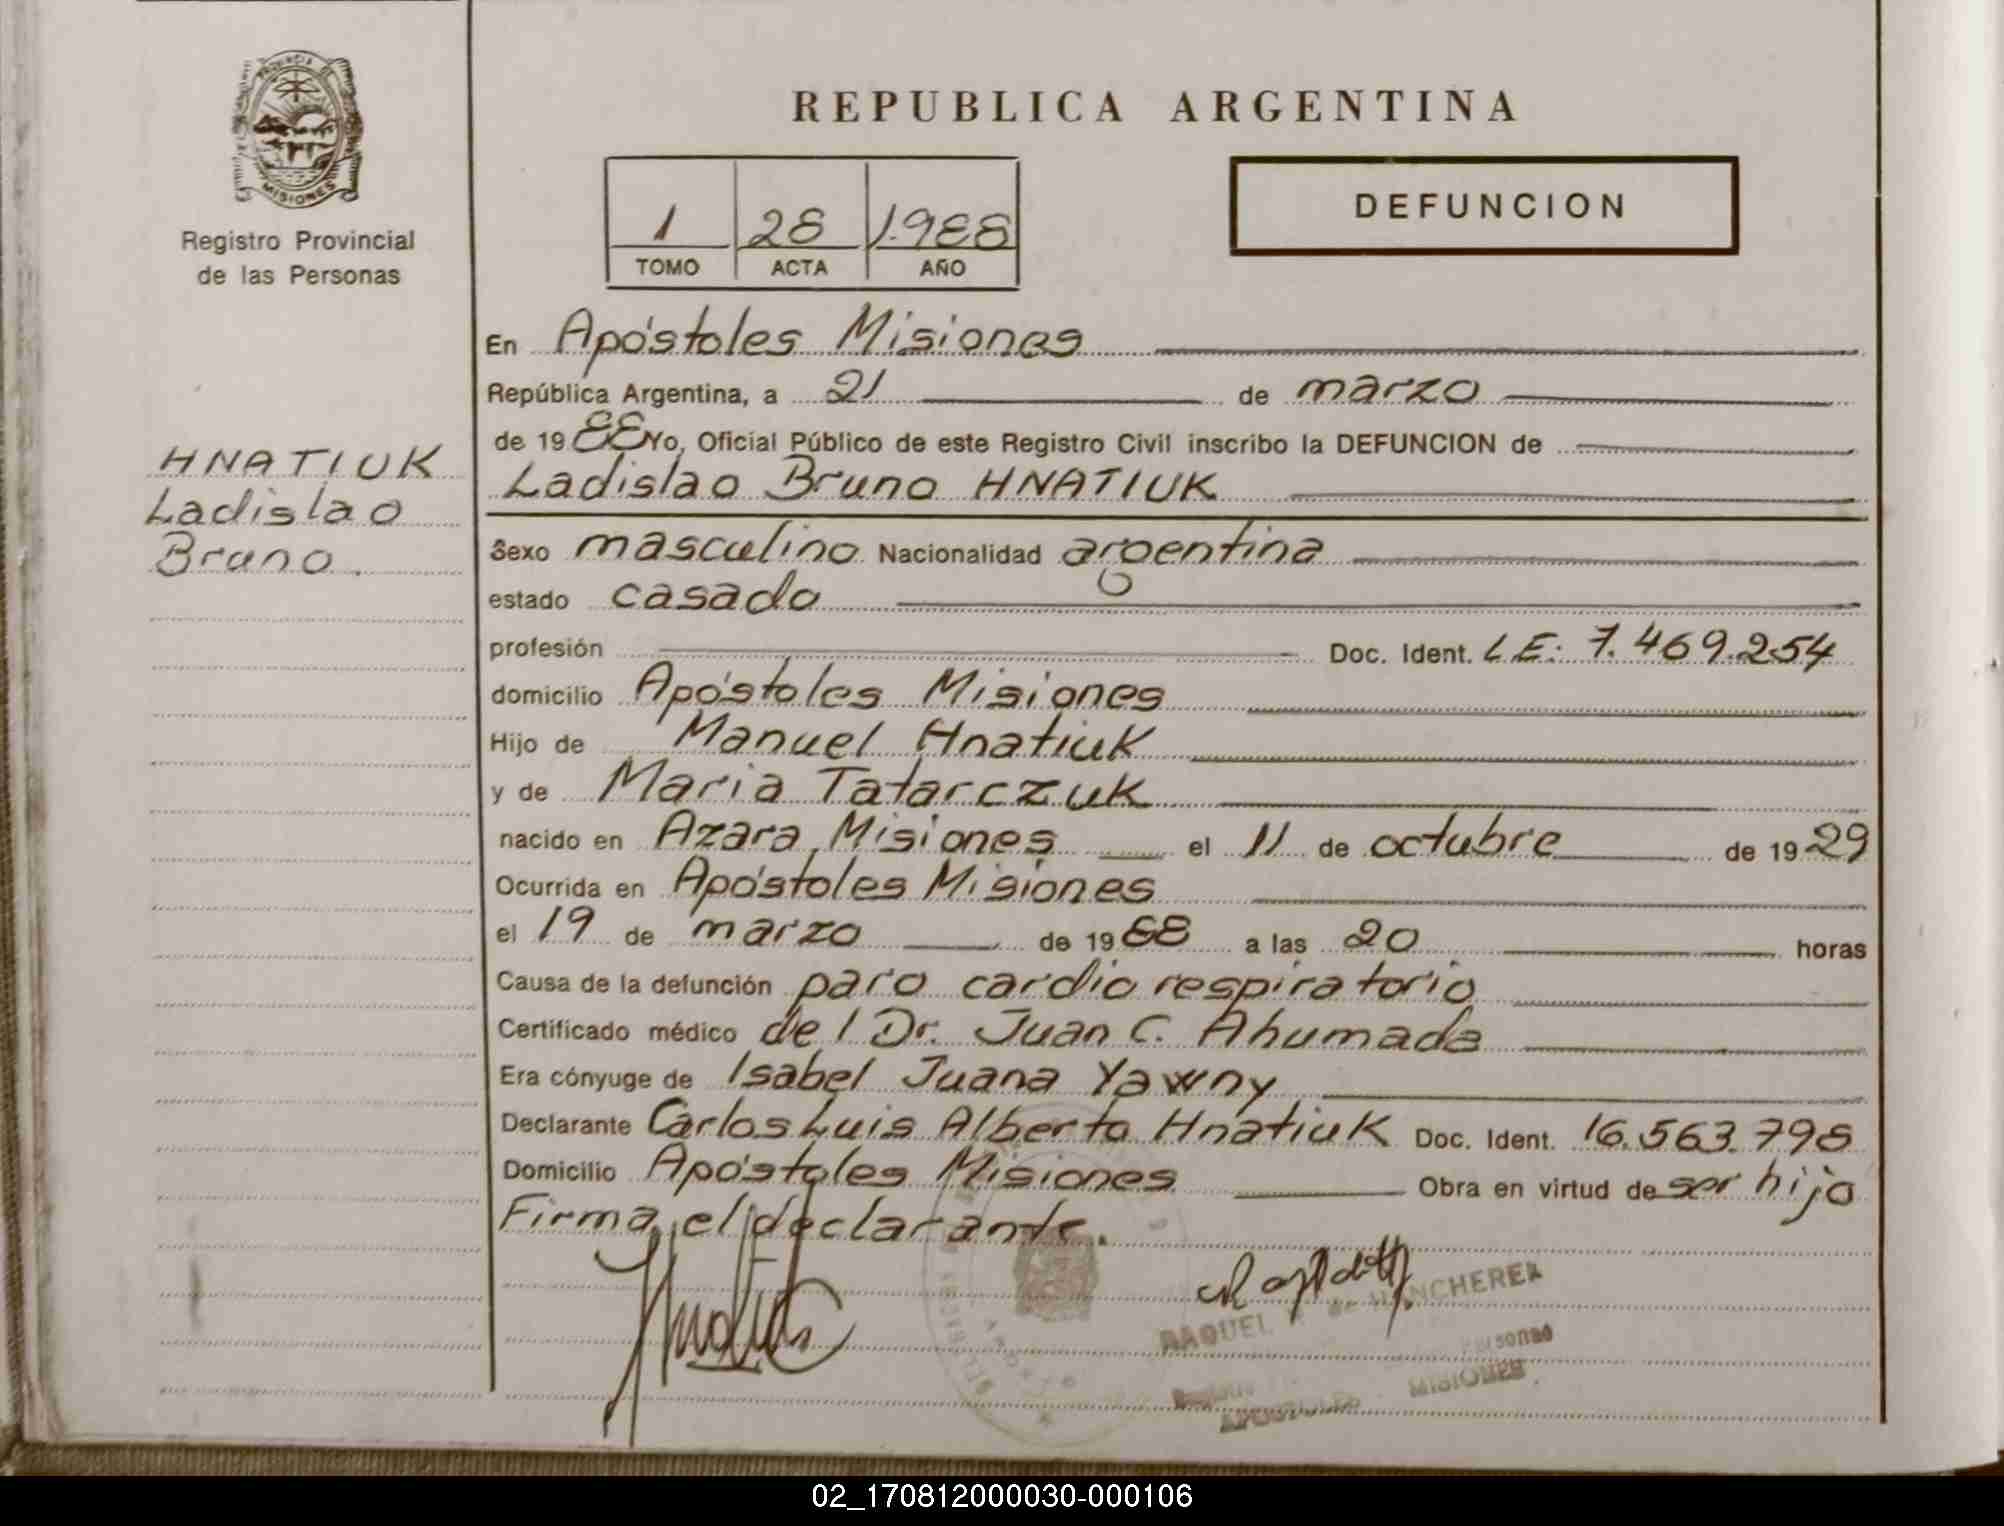 PROVINCIA DE
MISIONES
Registro Provincial
de las Personas
HNATIUK
Ladislao
Bruno.
REPUBLICA ARGENTINA
1 28 1.988
TOMO ACTA AÑO
DEFUNCION
En Apóstoles Misiones
República Argentina, a 21 de marzo
de 1988 Yo, Oficial Público de este Registro Civil inscribo la DEFUNCION de
Ladislao Bruno HNATIUK
Sexo masculino Nacionalidad argentina
estado casado
profesión Doc. Ident. LE: 7.469.254
domicilio Apóstoles Misiones
Hijo de Manuel Hnatiuk
y de Maria Tatarczuk
nacido en Azara, Misiones el 11 de octubre de 1929
Ocurrida en Apóstoles Misiones
el 19 de marzo de 1988 a las 20 horas
Causa de la defunción paro cardio respiratorio
Certificado médico del Dr. Juan C. Ahumada
Era cónyuge de Isabel Juana Yawny
Declarante Carlos Luis Alberto Hnatiuk Doc. Ident. 16.563.798
Domicilio Apóstoles Misiones Obra en virtud de ser hijo
Firma el declarante.
RAQUEL
MISIONES
APOSTOLES
02_170812000030-000106